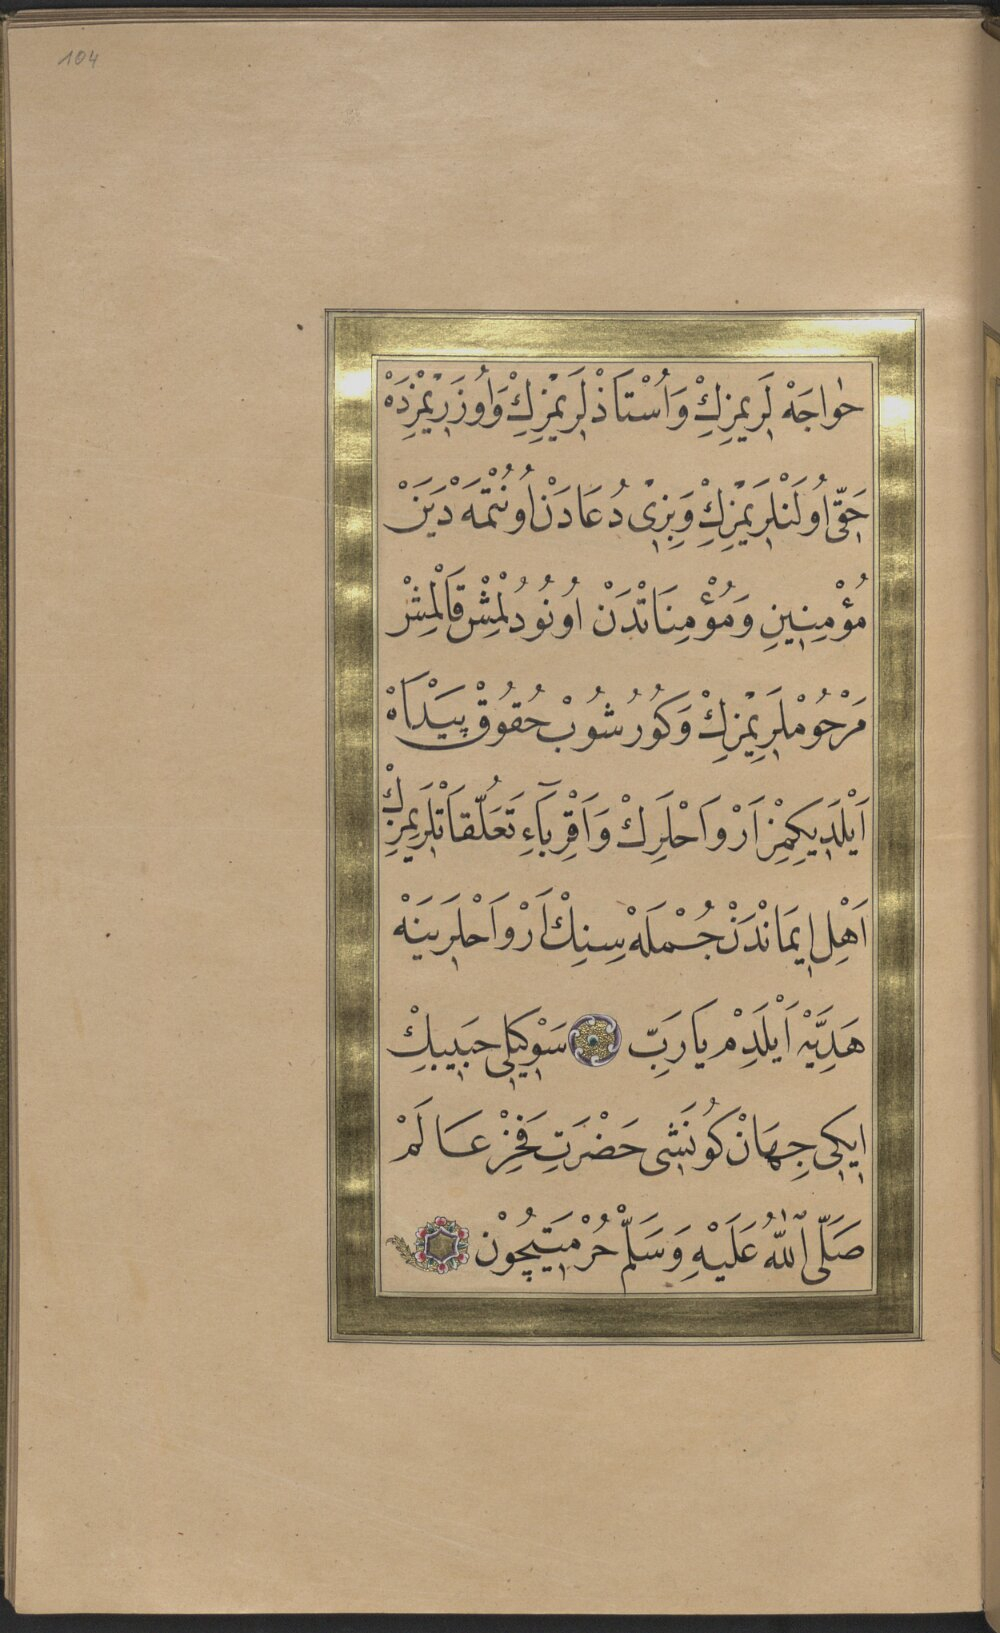 104
خٰواجَهْ لَرِيمِزِكْ وَاُسْتَاذْلَرِيمْزِكْ وَاُوزَرِيمْزِدَهْ
حَقّى اُولَنْلَرِيمْزِكْ وَبِزِى دُعَادَنْ اُونُتْمَهْ دَيَنْ
مُؤْمِنِينِ وَمُؤْمِنَاتْدَنْ اُونُودُلْمِشْ قَالْمِشْ
مَرْحُوْمْلَرِيْمْزِكْ وَكُورُشُوبْ حُقُوقْ پَيْدَاهْ
اَيْلَدِيكِمِزْ اَرْوَاحْلَرِكْ وَاَقْرِبَآءِ تَعَلُّقاَتْلَرِيمِزِكْ
اَهْلِ اِيمَانْدَنْ جُمْلَهْ سِنِكْ اَرْوَاحْلَرِينَهْ
هَدِيَّهْ اَيْلَدِمْ يَا رَبِّ سَوْكِيلِى حَبِيبِكْ
اِيكِى جِهَانْ كُونَشِى حَضْرَتِ فَخْرِ عَالَمْ
صَلَّى اللّٰهُ عَلَيْهِ وَسَلَّمْ حُرْمَتِيچُوْنْ